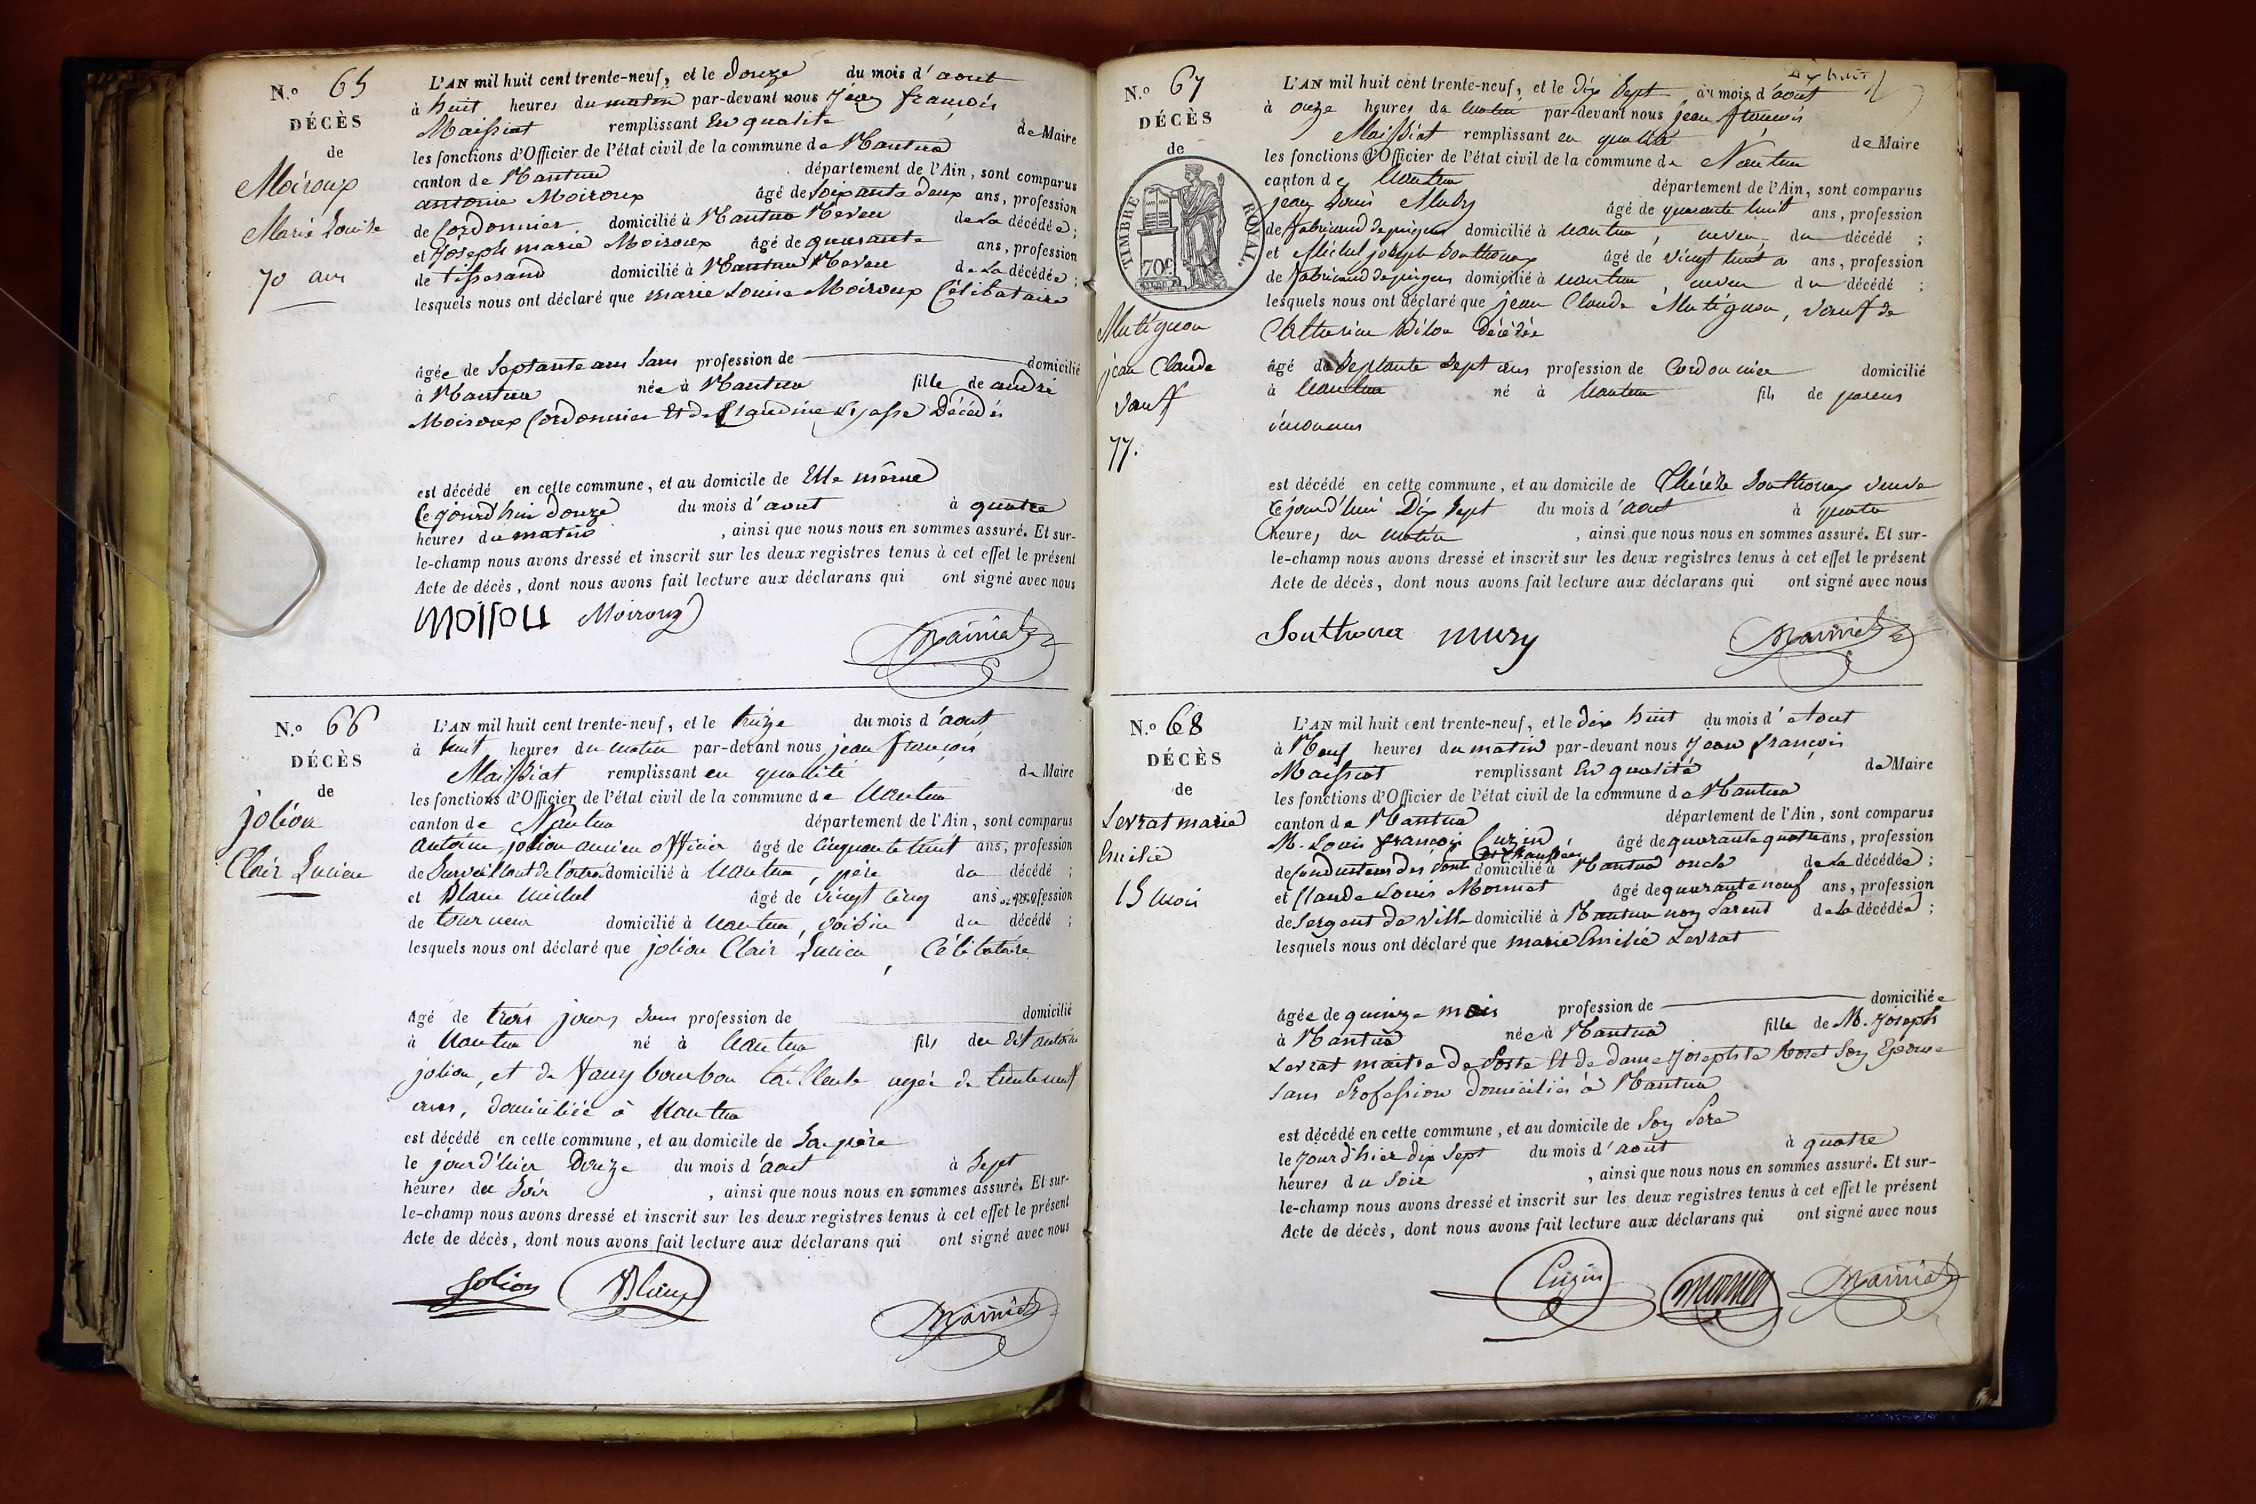 N.º 65
DÉCÈS
de
Moiroux
Marie Louise
70 ans
L'AN mil huit cent trente-neuf, et le douze du mois d'aout
à huit heures du matin par-devant nous Jean françois
Maissiat remplissant En qualité de Maire
les fonctions d'Officier de l'état civil de la commune de Nantua
canton de Nantua département de l'Ain, sont comparus
antoine Moiroux âgé de soixante deux ans, profession
de Cordonnier domicilié à Nantua Neveu de La décédée;
et Joseph marie Moiroux âgé de quarante ans, profession
de tisserand domicilié à Nantua Neveu de La décédée;
lesquels nous ont déclaré que marie Louise Moiroux Célibataire
âgée de Septante ans Sans profession de domicilié
à Nantua née à Nantua fille de andré
Moiroux Cordonnier Et de Claudine Décédés
est décédé en cette commune, et au domicile de Elle même
Ce jourd'hui douze du mois d'aout à quatre
heures du matin, ainsi que nous nous en sommes assuré. Et sur-
le-champ nous avons dressé et inscrit sur les deux registres tenus à cet effet le présent
Acte de décès, dont nous avons fait lecture aux déclarans qui ont signé avec nous
Moiroux Maissiat
N.º 66
DÉCÈS
de
joliou
Clair Lucien
L'AN mil huit cent trente-neuf, et le treize du mois d'aout
à huit heures du matin par-devant nous jean françois
Maissiat remplissant en qualité de Maire
les fonctions d'Officier de l'état civil de la commune de Nantua
canton de Nantua département de l'Ain, sont comparus
antoine joliou ancien officier âgé de cinquante huit ans, profession
de Surveillant de l'octroi domicilié à Nantua, père du décédé;
et Blanc michel âgé de vingt cinq ans, profession
de tourneur domicilié à Nantua, voisin du décédé;
lesquels nous ont déclaré que joliou Clair Lucien, Célibataire
âgé de trois jours sans profession de domicilié
à Nantua né à Nantua fils du dit antoine
joliou, et de fany bourbon tailleuse agée de trente neuf
ans, domiciliée à Nantua
est décédé en cette commune, et au domicile de Son père
le jourd'hier Douze du mois d'aout à Sept
heures du Soir, ainsi que nous nous en sommes assuré. Et sur-
le-champ nous avons dressé et inscrit sur les deux registres tenus à cet effet le présent
Acte de décès, dont nous avons fait lecture aux déclarans qui ont signé avec nous
Joliou Blanc Maissiat
N.º 67
DÉCÈS
de
TIMBRE ROYAL.
70c
Matignon
jean Claude
veuf
77.
Dix huit
L'AN mil huit cent trente-neuf, et le dix Sept du mois d'aout
à onze heures du matin par-devant nous jean françois
Maissiat remplissant en qualité de Maire
les fonctions d'Officier de l'état civil de la commune de Nantua
canton de Nantua département de l'Ain, sont comparus
jean Louis Mury âgé de quarante huit ans, profession
de fabricand de peignes domicilié à Nantua, neveu du décédé;
et Michel joseph Southonax âgé de vingt huit a ans, profession
de fabricand de peignes domicilié à nantua, neveu du décédé;
lesquels nous ont déclaré que jean Claude Matignon, veuf de
Catherine Décédée
âgé de Septante Sept ans profession de Cordonnier domicilié
à Nantua né à Nantua fils de parens
inconnus
est décédé en cette commune, et au domicile de Thérèse Southonax veuve
Cejourd'hui Dix Sept du mois d'aout à quatre
heures du matin, ainsi que nous nous en sommes assuré. Et sur-
le-champ nous avons dressé et inscrit sur les deux registres tenus à cet effet le présent
Acte de décès, dont nous avons fait lecture aux déclarans qui ont signé avec nous
Southonax mury Maissiat
N.º 68
DÉCÈS
de
Levrat marie
Emilie
15 mois
L'AN mil huit cent trente-neuf, et le dix huit du mois d'Aout
à Neuf heures du matin par-devant nous Jean françois
Maissiat remplissant En qualité de Maire
les fonctions d'Officier de l'état civil de la commune de Nantua
canton de Nantua département de l'Ain, sont comparus
M. Louis françois Cuzin âgé de quarante quatre ans, profession
de Conducteur des Ponts et Chaussées domicilié à Nantua oncle de La décédée;
et Claude Louis Monnet âgé de quarante neuf ans, profession
de Sergent de ville domicilié à Nantua non Parent de La décédée;
lesquels nous ont déclaré que marie Emilie Levrat
âgée de quinze mois profession de domiciliée
à Nantua née à Nantua fille de M. Joseph
Levrat maitre de Poste Et de dame Josephte Son Epouse
sans Profession domiciliés à Nantua
est décédé en cette commune, et au domicile de Son Père
le Jourd'hier dix Sept du mois d'aout à quatre
heures du Soir, ainsi que nous nous en sommes assuré. Et sur-
le-champ nous avons dressé et inscrit sur les deux registres tenus à cet effet le présent
Acte de décès, dont nous avons fait lecture aux déclarans qui ont signé avec nous
Cuzin Monnet Maissiat